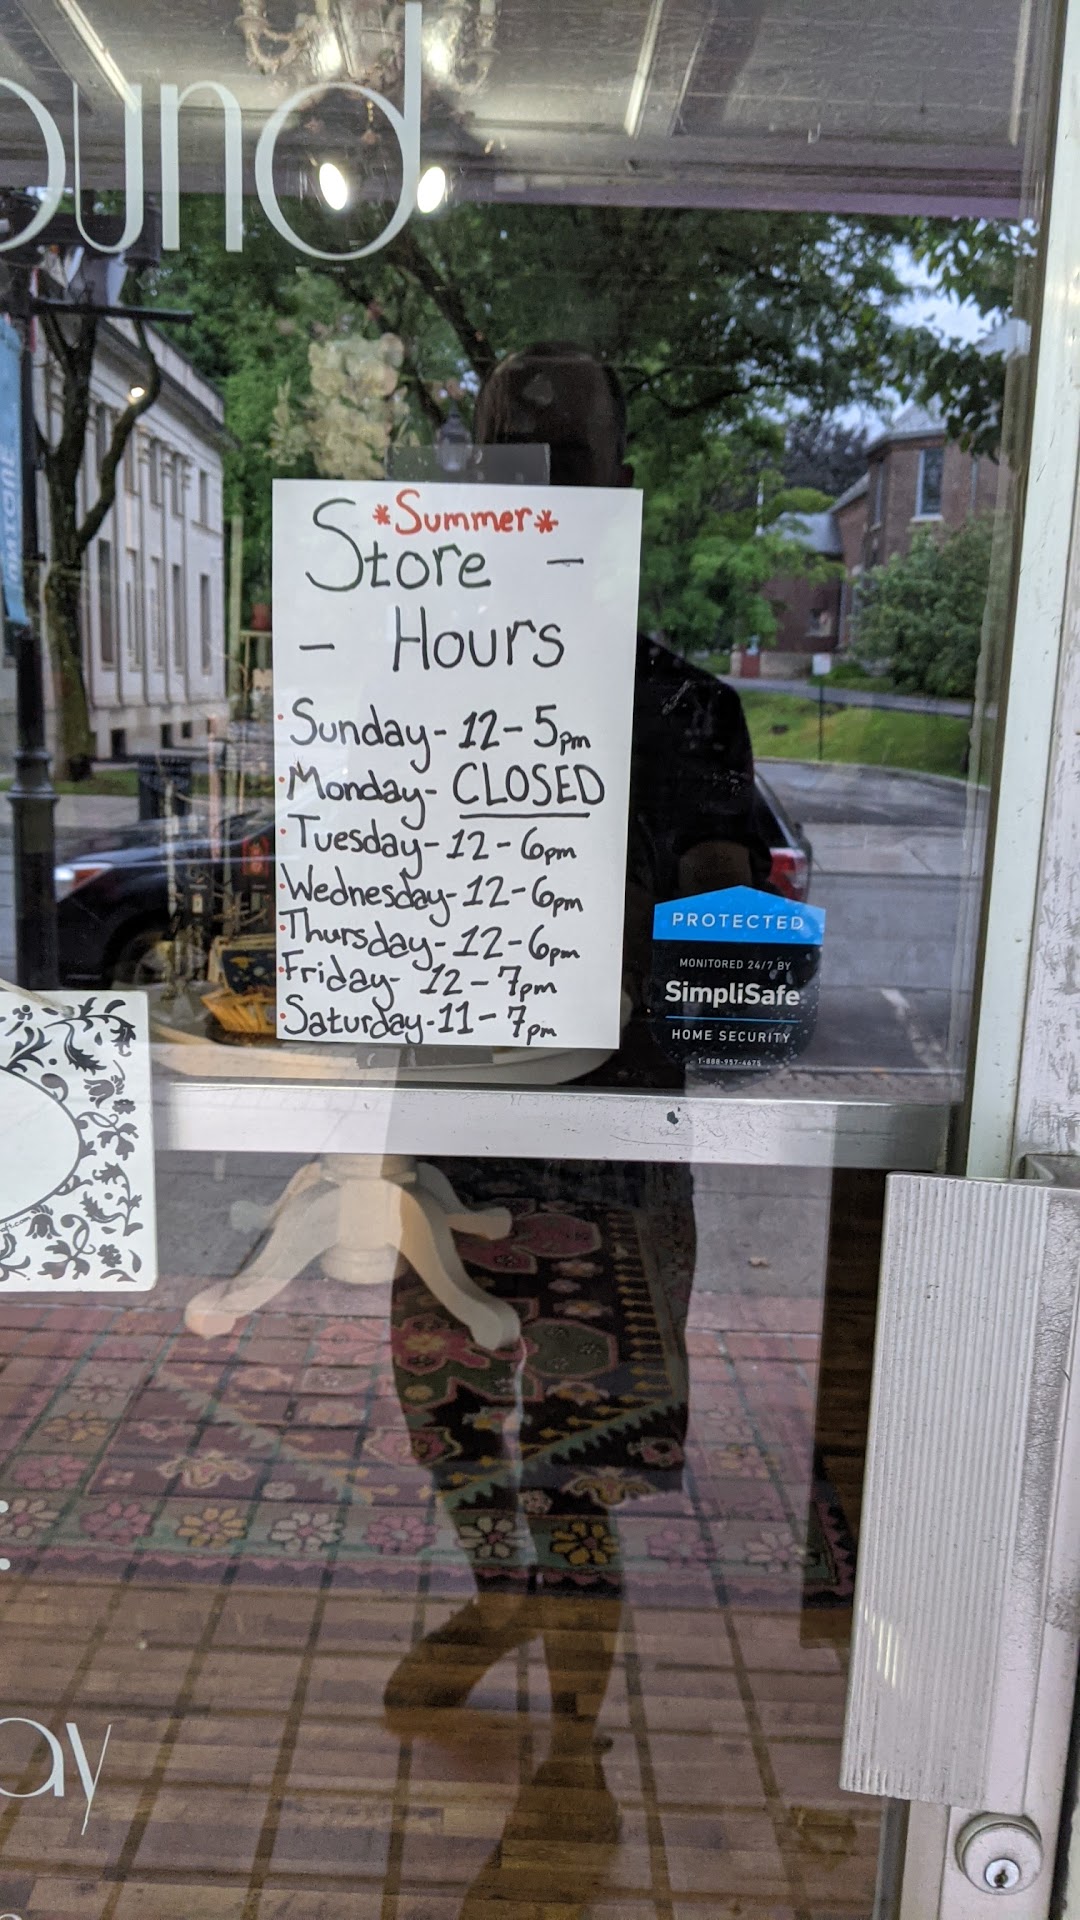 *Summer*
Store -
- Hours
·Sunday- 12-5pm
·Monday- CLOSED
·Tuesday- 12-6pm
·Wednesday- 12-6pm
·Thursday- 12-6pm
·Friday- 12-7pm
·Saturday- 11-7pm
PROTECTED
MONITORED 24/7 BY
SimpliSafe
HOME SECURITY
1-888-957-4675